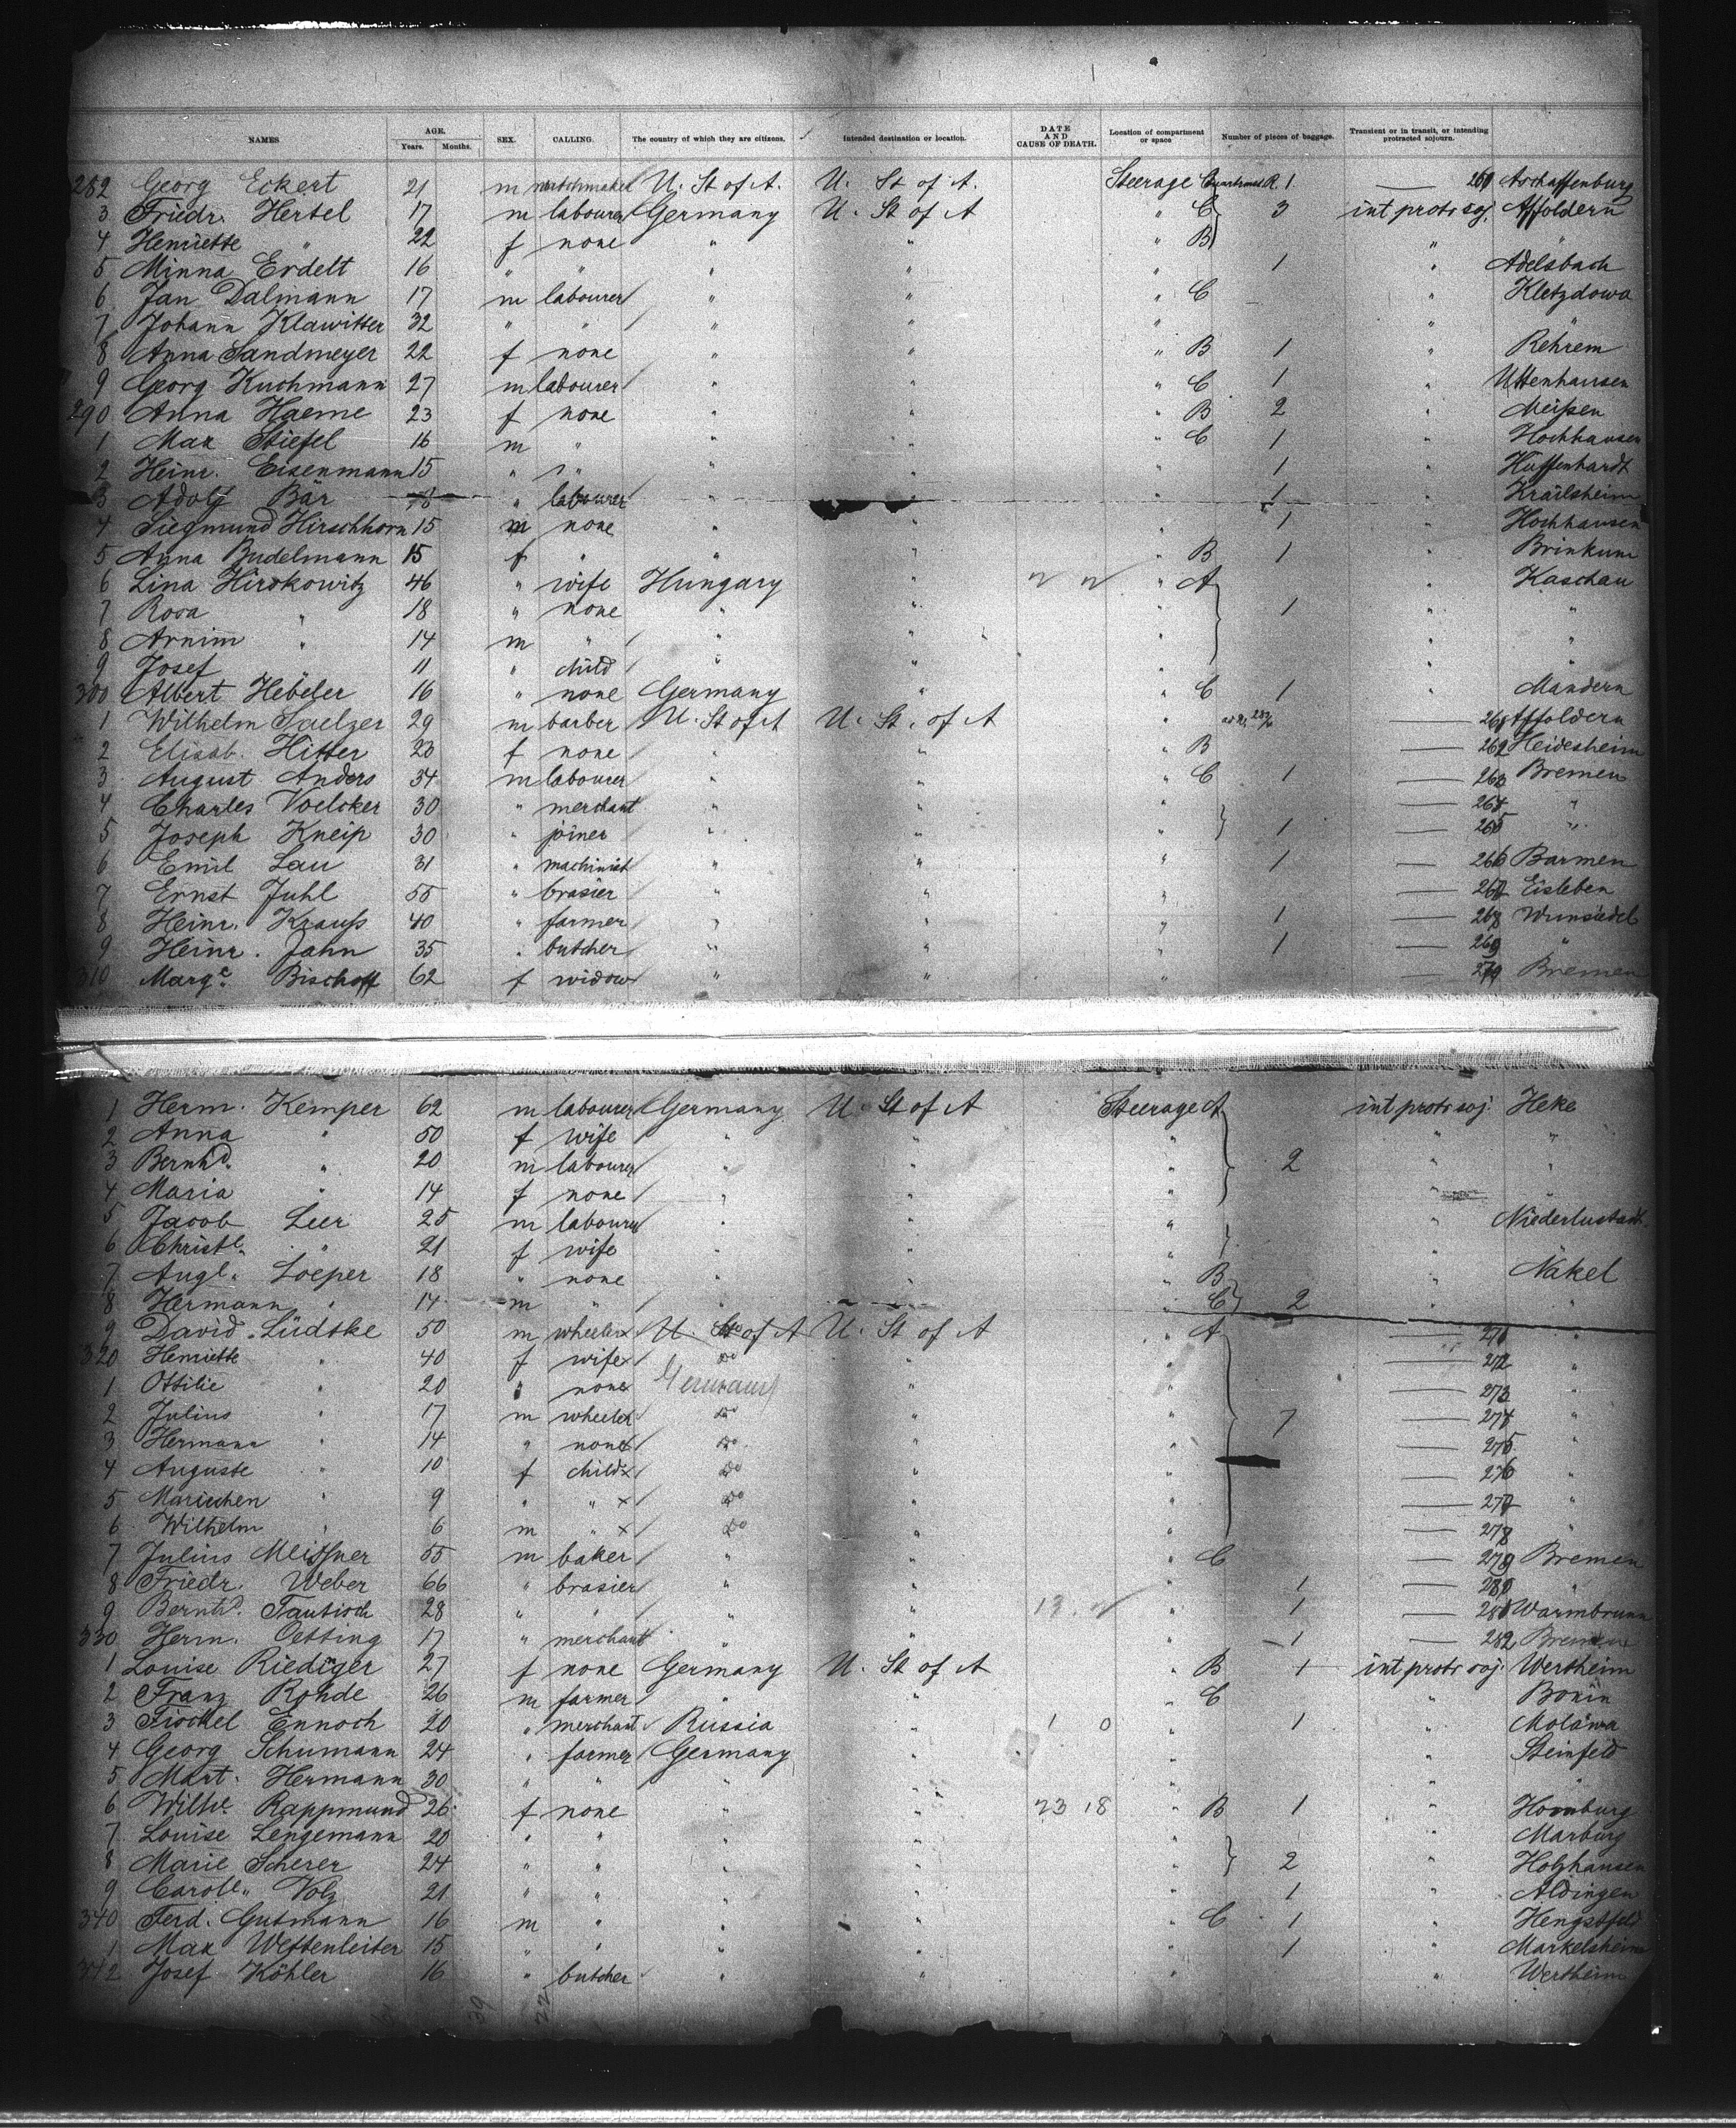 NAMES AGE. Years. Months. SEX. CALLING. The country of which they are citizens. Intended destination or location. DATE AND CAUSE OF DEATH. Location of compartment or space Number of pieces of baggage. Transient or in transit, or intending protracted sojourn.
282 Georg Eckert 21 m U. St of A. U. St of A. Steerage 1 — Aschaffenburg
3 Friedr. Hertel 17 m labourer Germany U. St of A " C 3 int protr soj. Affoldern
4 Henriette " 22 f none " " " B " "
5 Minna Erdelt 16 " " " " " 1 " Adelsbach
6 Jan Dalmann 17 m labourer " " " C " Kletzdowo
7 Johann Klawitter 32 " " " " " " "
8 Anna Sandmeyer 22 f none " " " B 1 " Rehrem
9 Georg Kuchmann 27 m labourer " " " C 1 " Uttenhausen
290 Anna Haeme 23 f none " " " B 2 " Meißen
1 Max Stiefel 16 m " " " " C 1 " Hochhausen
2 Heinr. Eisenmann 15 " " " " " 1 " Huffenhardt
3 Adolf Bär " labourer " " " 1 " Krailsheim
4 Siegmund Hirschhorn 15 m none " " " 1 " Hochhausen
5 Anna Budelmann 15 f " " " " B 1 " Brinkum
6 Lina Hirskowitz 46 " wife Hungary " " A " Kaschau
7 Rosa " 18 " none " " " 1 " "
8 Arnim " 14 m " " " " " "
9 Josef 11 " child " " " " "
300 Albert Hebeler 16 " none Germany " " C 1 " Mandern
1 Wilhelm Saelzer 29 m barber U. St of A U. St. of A " — 261 Affoldern
2 Elisab. Hitter 23 f none " " " B — 262 Heidesheim
3 August Anders 34 m labourer " " " C 1 — 263 Bremen
4 Charles Voelcker 30 " merchant " " " — 264 "
5 Joseph Kneip 30 " joiner " " " 1 — 265 "
6 Emil Lau 31 " machinist " " " 1 — 266 Barmen
7 Ernst Juhl 55 " brasier " " " — 267 Eisleben
8 Heinr. Krauss 40 " farmer " " " 1 — 268 Wunsiedel
9 Heinr. Jahn 35 " butcher " " " 1 — 269 "
310 Marg.e Bischoff 62 f widow " " " — Bremen
1 Herm. Kemper 62 m labourer Germany U. St of A Steerage A int protr soj. Heke
2 Anna " 50 f wife " " " " "
3 Bernhd. " 20 m labourer " " " 2 " "
4 Maria " 14 f none " " " "
5 Jacob Leer 25 m labourer " " " " Niederlustadt
6 Christe. " 21 f wife " " " "
7 Augl. Loeper 18 " none " " " B " Nakel
8 Hermann " 14 m " " " " C 2 " "
9 David Lüdtke 50 m wheeler U. St of A U. St of A " A — 271 "
320 Henriette " 40 f wife do " " — 272 "
1 Ottilie " 20 " none Germany " " — 273 "
2 Julius " 17 m wheeler do " " 7 — 274 "
3 Hermann " 14 " none do " " — 275 "
4 Auguste " 10 f child do " " — 276 "
5 Mariechen " 9 " " do " " — 277 "
6 Wilhelm " 6 m " do " " — 278 "
7 Julius Meissner 55 m baker " " " C — 279 Bremen
8 Friedr. Weber 66 " brasier " " " 1 — 280 "
9 Bernhd. Tautisch 28 " " " " " 1 — 281 Warmbrunn
330 Herm. Oetting 17 " merchant " " " 1 — 282 Bremen
1 Louise Riediger 27 f none Germany U. St of A " B 1 int protr soj. Wertheim
2 Franz Rohde 26 m farmer " " " C " Bonin
3 Fischel Ennoch 20 " merchant Russia " 1 0 " 1 " Molawa
4 Georg Schumann 24 " farmer Germany " " " Steinfeld
5 Mart. Hermann 30 " " " " " " "
6 Wilhe. Rappmund 26 f none " " 23 18 " B 1 " Homburg
7 Louise Lengemann 20 " " " " " " Marburg
8 Marie Scherer 24 " " " " " 2 " Holzhausen
9 Carole. Volz 21 " " " " " 1 " Aldingen
340 Ferd. Gutmann 16 m " " " " C 1 " Hengstfeld
1 Max Wettenleiter 15 " " " " " 1 " Markelsheim
342 Josef Köhler 16 " butcher " " " " Wertheim
39 22